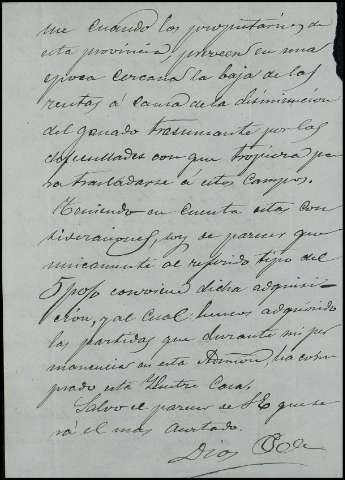 me cuando los propietarios de
esta provincia, preveen en una
epoca cercana la baja de las
rentas á causa de la disminucion
del ganado trasumante por las
dificultades con que tropieza pa
ra trasladarse á estos campos.
Teniendo en cuenta estas con
sideraciones, soy de parecer que
unicamente al referido tipo del
5 p% conviene dicha adquisi-
ción, y al cual hemos adquirido
las partidas que durante mi per
manencia en esta Admón, ha com
prado esta Ilustre Casa.
Salvo el parecer de S E que se
rá el mas acertado.
Dios